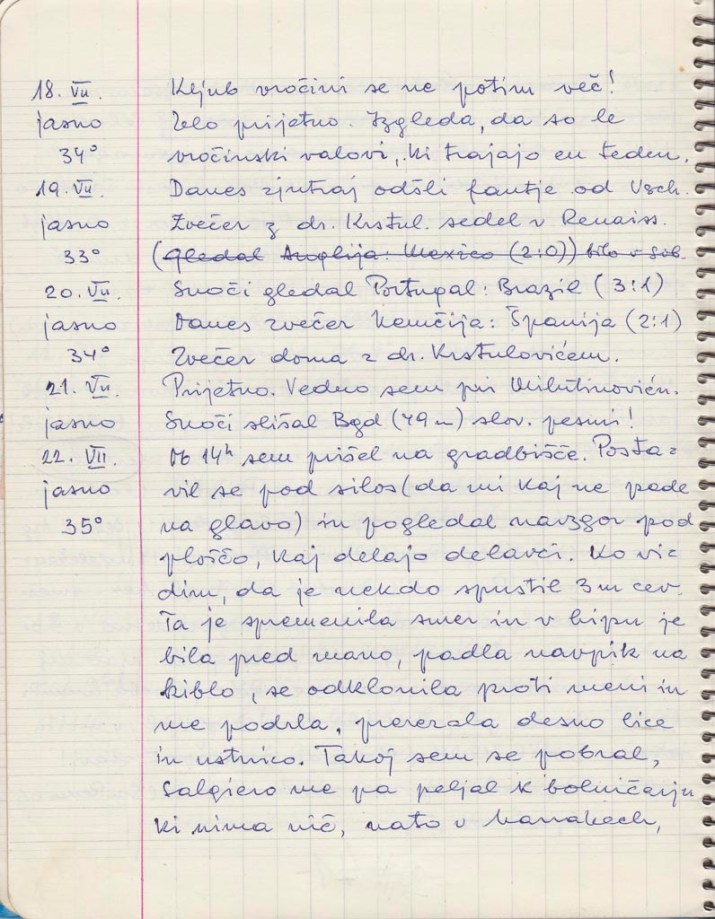 18. VII. Kljub vročini se ne potim več!
jasno Zelo prijetno. Izgleda, da so le
34° vročinski valovi, ki trajajo en teden.
19. VII. Danes zjutraj odšli fantje od Vsch.
jasno Zvečer z dr. Krstul. sedel v Renaiss.
33° (gledal Anglija: Mexico (2:0)) bilo v sob.
20. VII. Snoči gledal Portugal: Brazil (3:1)
jasno Danes zvečer Nemčija: Španija (2:1)
34° Zvečer doma z dr. Krstulovićem.
21. VII. Prijetno. Vedno sem pri Milutinoviću.
jasno Snoči slišal Bgd (49 m) slov. pesmi!
22. VII. Ob 14h sem prišel na gradbišče. Posta=
jasno vil se pod silos (da mi kaj ne pade
35° na glavo) in pogledal navzgor pod
ploščo, kaj delajo delavci. Ko vi=
dim, da je nekdo spustil 3 m cev.
Ta je spremenila smer in v hipu je
bila pred mano, padla navpik na
kiblo, se odklonila proti meni in
me podrla, prerezala desno lice
in ustnico. Takoj sem se pobral,
Salgiero me pa peljal k bolničarju
ki nima nič, nato v barakach,